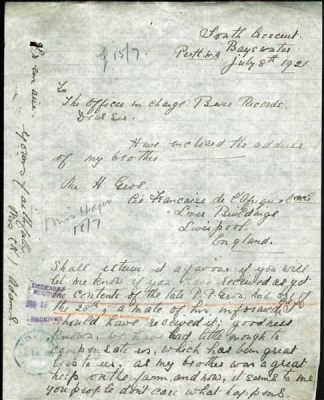 South Crescent
Bayswater
Perth W.A
July 8th 1921
15/7
To
The Officer in Charge Base Records
Dear Sir
Have enclosed the address
of my brother
Mr H Gros
Cie Francaise de l'Afrique
Liver Buildings
Liverpool
England.
15/7
Shall esteem it a favour if you will
let me know if you have received as yet
the contents of the late Pt Gros
the 28th, a mate of his informed us you
should have received it; goodness
knows we have had little enough to
compensate us, which has been great
loss to us, as my brother was a great
help on the farm and now, it seems to me
you people don't care what happens
I am Sir
Yours faithfully
Mrs
RECEIVED